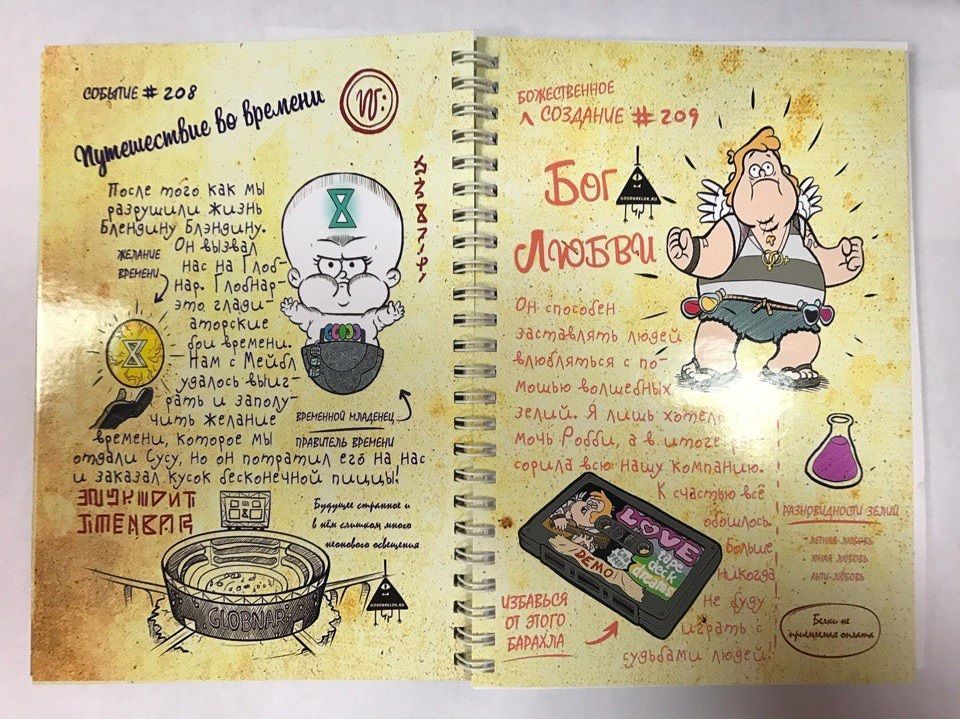 СОБЫТИЕ # 208
Путешествие во времени
После того как мы
разрушили жизнь
Блендину Блэндину.
Он вызвал
нас на Глоб-
нар. Глобнар-
это глади-
аторские
бои времени.
Нам с Мейбл
удалось выиг-
рать и заполу-
чить желание
времени, которое мы
отдали Сусу, но он потратил его на нас
и заказал кусок бесконечной пиццы!
ЖЕЛАНИЕ
ВРЕМЕНИ
ВРЕМЕННОЙ МЛАДЕНЕЦ
ПРАВИТЕЛЬ ВРЕМЕНИ
Будущее странное и
в нём слишком много
неонового освещения
GLOBNAR
GOODSRELOK.RU
БОЖЕСТВЕННОЕ
СОЗДАНИЕ # 209
Бог
Любви
GOODSRELOK.RU
Он способен
заставлять людей
влюбляться с по-
мощью волшебных
зелий. Я лишь хотела
мочь Робби, а в итоге
сорила всю нашу компанию.
К счастью всё
обошлось
Больше
никогда
не буду
играть с
судьбами людей!
LOVE
tape
deck
dreams
DEMO
ИЗБАВЬСЯ
ОТ ЭТОГО
БАРАХЛА
РАЗНОВИДНОСТИ ЗЕЛИЙ
- ЛЕТНЯЯ ЛЮБОВЬ
- ЮНАЯ ЛЮБОВЬ
- АНТИ-ЛЮБОВЬ
Белки не
приемлемая оплата